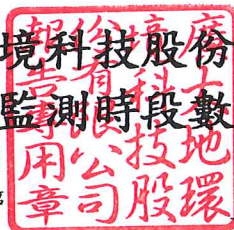 境科技股份
監測時段數
廣土地環
境科技股
份有限公司
報告專用章